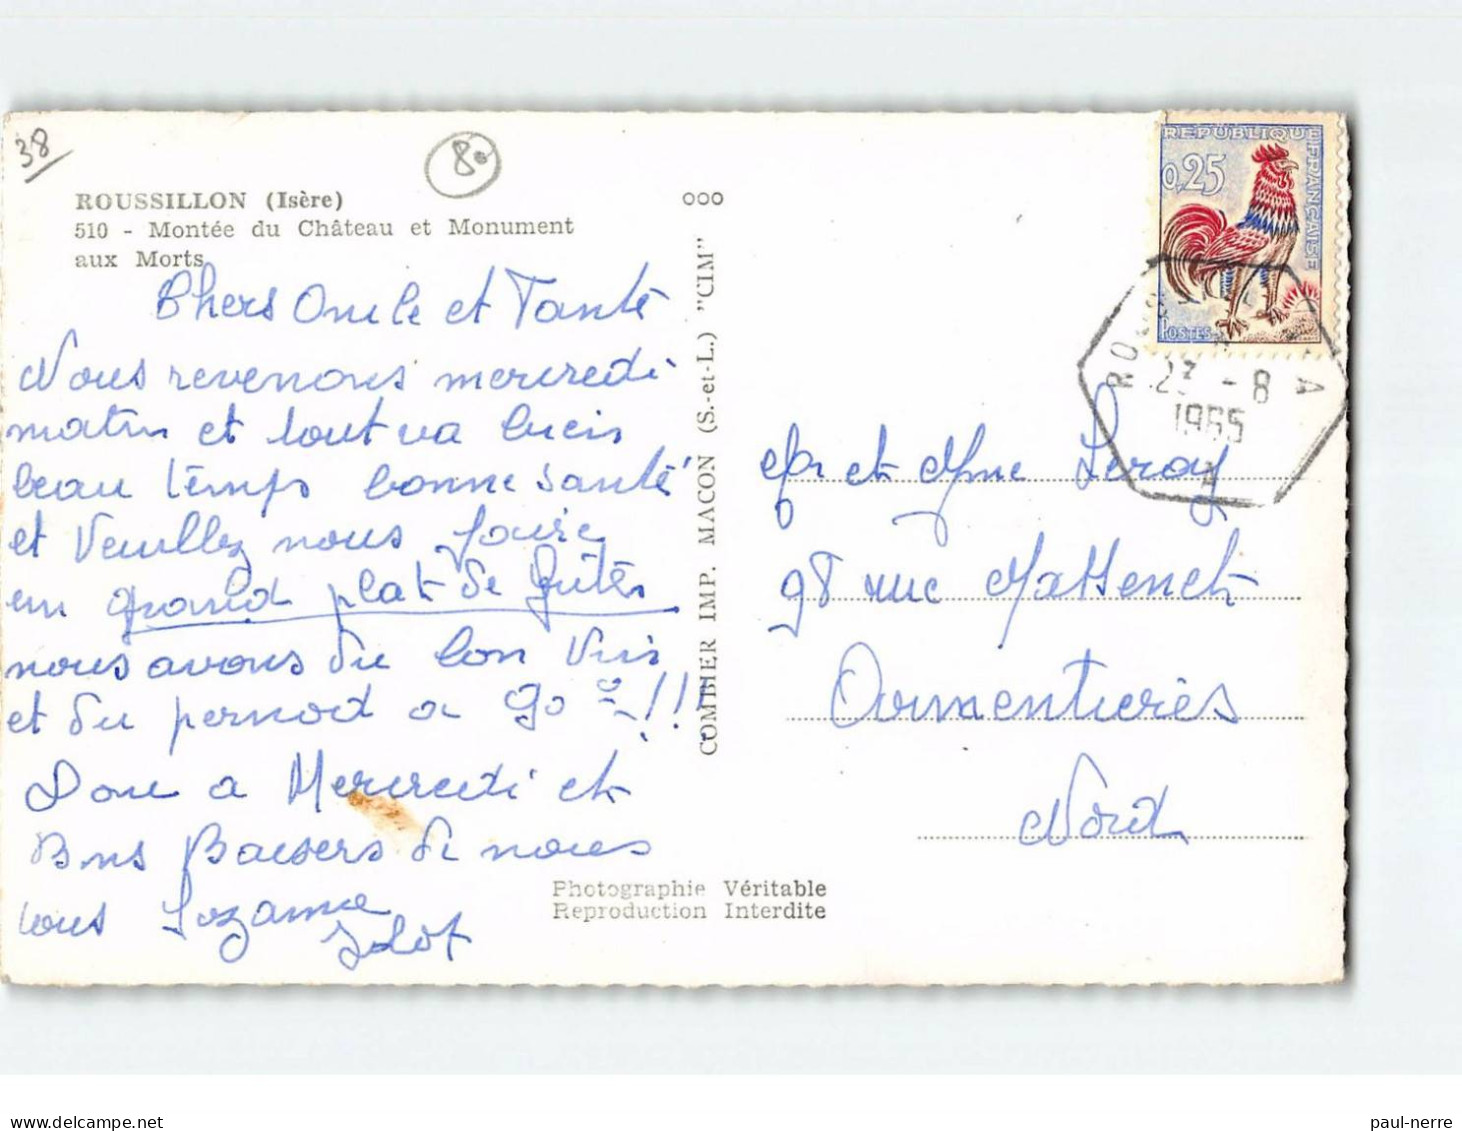 38
80
ROUSSILLON (Isère)
510 - Montée du Château et Monument
aux Morts
Chers Oncle et Tante
Nous revenons mercredi
matin et tout va bien
beau temps bonne santé
et Veuillez nous faire
un grand plat de frites
nous avons du bon Vin
et du pernod a 90°!!!
Donc a Mercredi et
Bons Baisers de nous
tous Suzanne
ooo
COMBIER IMP. MACON (S.-et-L.) "CIM"
Photographie Véritable
Reproduction Interdite
REPUBLIQUE FRANÇAISE
0,25
POSTES
23 - 8
1965
A
Mr et Mme Leroy
98 rue
Armentières
Nord
paul-nerre